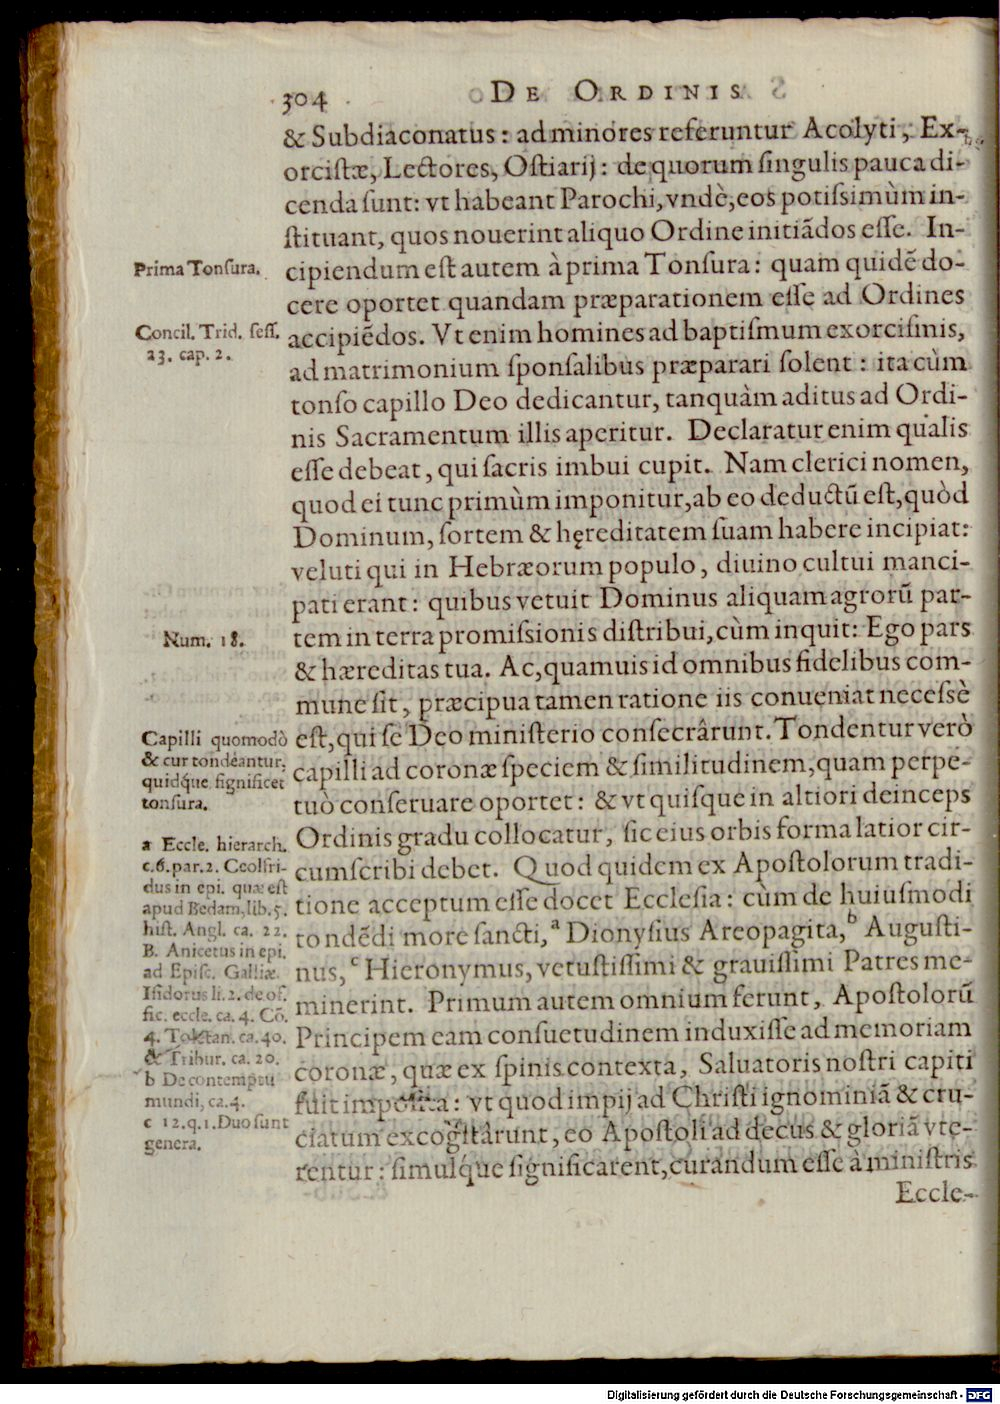 304 DE ORDINIS
& Subdiaconatus: ad minores referuntur Acolyti, Ex-
orcistæ, Lectores, Ostiarij: de quorum singulis pauca di-
cenda sunt: vt habeant Parochi, vndè, eos potissimùm in-
stituant, quos nouerint aliquo Ordine initiãdos esse. In-
cipiendum est autem à prima Tonsura: quam quidẽ do-
cere oportet quandam præparationem esse ad Ordines
accipiẽdos. Vt enim homines ad baptismum exorcismis,
ad matrimonium sponsalibus præparari solent: ita cùm
tonso capillo Deo dedicantur, tanquàm aditus ad Ordi-
nis Sacramentum illis aperitur. Declaratur enim qualis
esse debeat, qui sacris imbui cupit. Nam clerici nomen,
quod ei tunc primùm imponitur, ab eo deductũ est, quòd
Dominum, sortem & hęreditatem suam habere incipiat:
veluti qui in Hebræorum populo, diuino cultui manci-
pati erant: quibus vetuit Dominus aliquam agrorũ par-
tem in terra promissionis distribui, cùm inquit: Ego pars
& hæreditas tua. Ac, quamuis id omnibus fidelibus com-
mune sit, præcipua tamen ratione iis conueniat necessè
est, qui se Deo ministerio consecrârunt. Tondentur verò
capilli ad coronæ speciem & similitudinem, quam perpe-
tuò conseruare oportet: & vt quisque in altiori deinceps
Ordinis gradu collocatur, sic eius orbis forma latior cir-
cumscribi debet. Quod quidem ex Apostolorum tradi-
tione acceptum esse docet Ecclesia: cùm de huiusmodi
tondẽdi more sancti, a Dionysius Areopagita, b Augusti-
nus, c Hieronymus, vetustissimi & grauissimi Patres me-
minerint. Primum autem omnium ferunt, Apostolorũ
Principem eam consuetudinem induxisse ad memoriam
coronæ, quæ ex spinis contexta, Saluatoris nostri capiti
fuit imposita: vt quod impij ad Christi ignominiã & cru-
ciatum excogitârunt, eo Apostoli ad decus & gloriã vte-
rentur: simulq́ue significarent, curandum esse à ministris
Eccle-
Prima Tonsura.
Concil. Trid. sess.
23. cap. 2.
Num. 18.
Capilli quomodò
& cur tondeantur,
quidq́ue significet
tonsura.
a Eccle. hierarch.
c. 6. par. 2. Ceolfri-
dus in epi. quæ est
apud Bedam, lib. 5.
hist. Angl. ca. 22.
B. Anicetus in epi.
ad Episc. Galliæ.
Isidorus li. 2. de of.
fic. eccle. ca. 4. Cõ.
4. Toletan. ca. 40.
& Tribur. ca. 20.
b De contemptu
mundi, ca. 4.
c 12. q. 1. Duo sunt
genera.
Digitalisierung gefördert durch die Deutsche Forschungsgemeinschaft - DFG